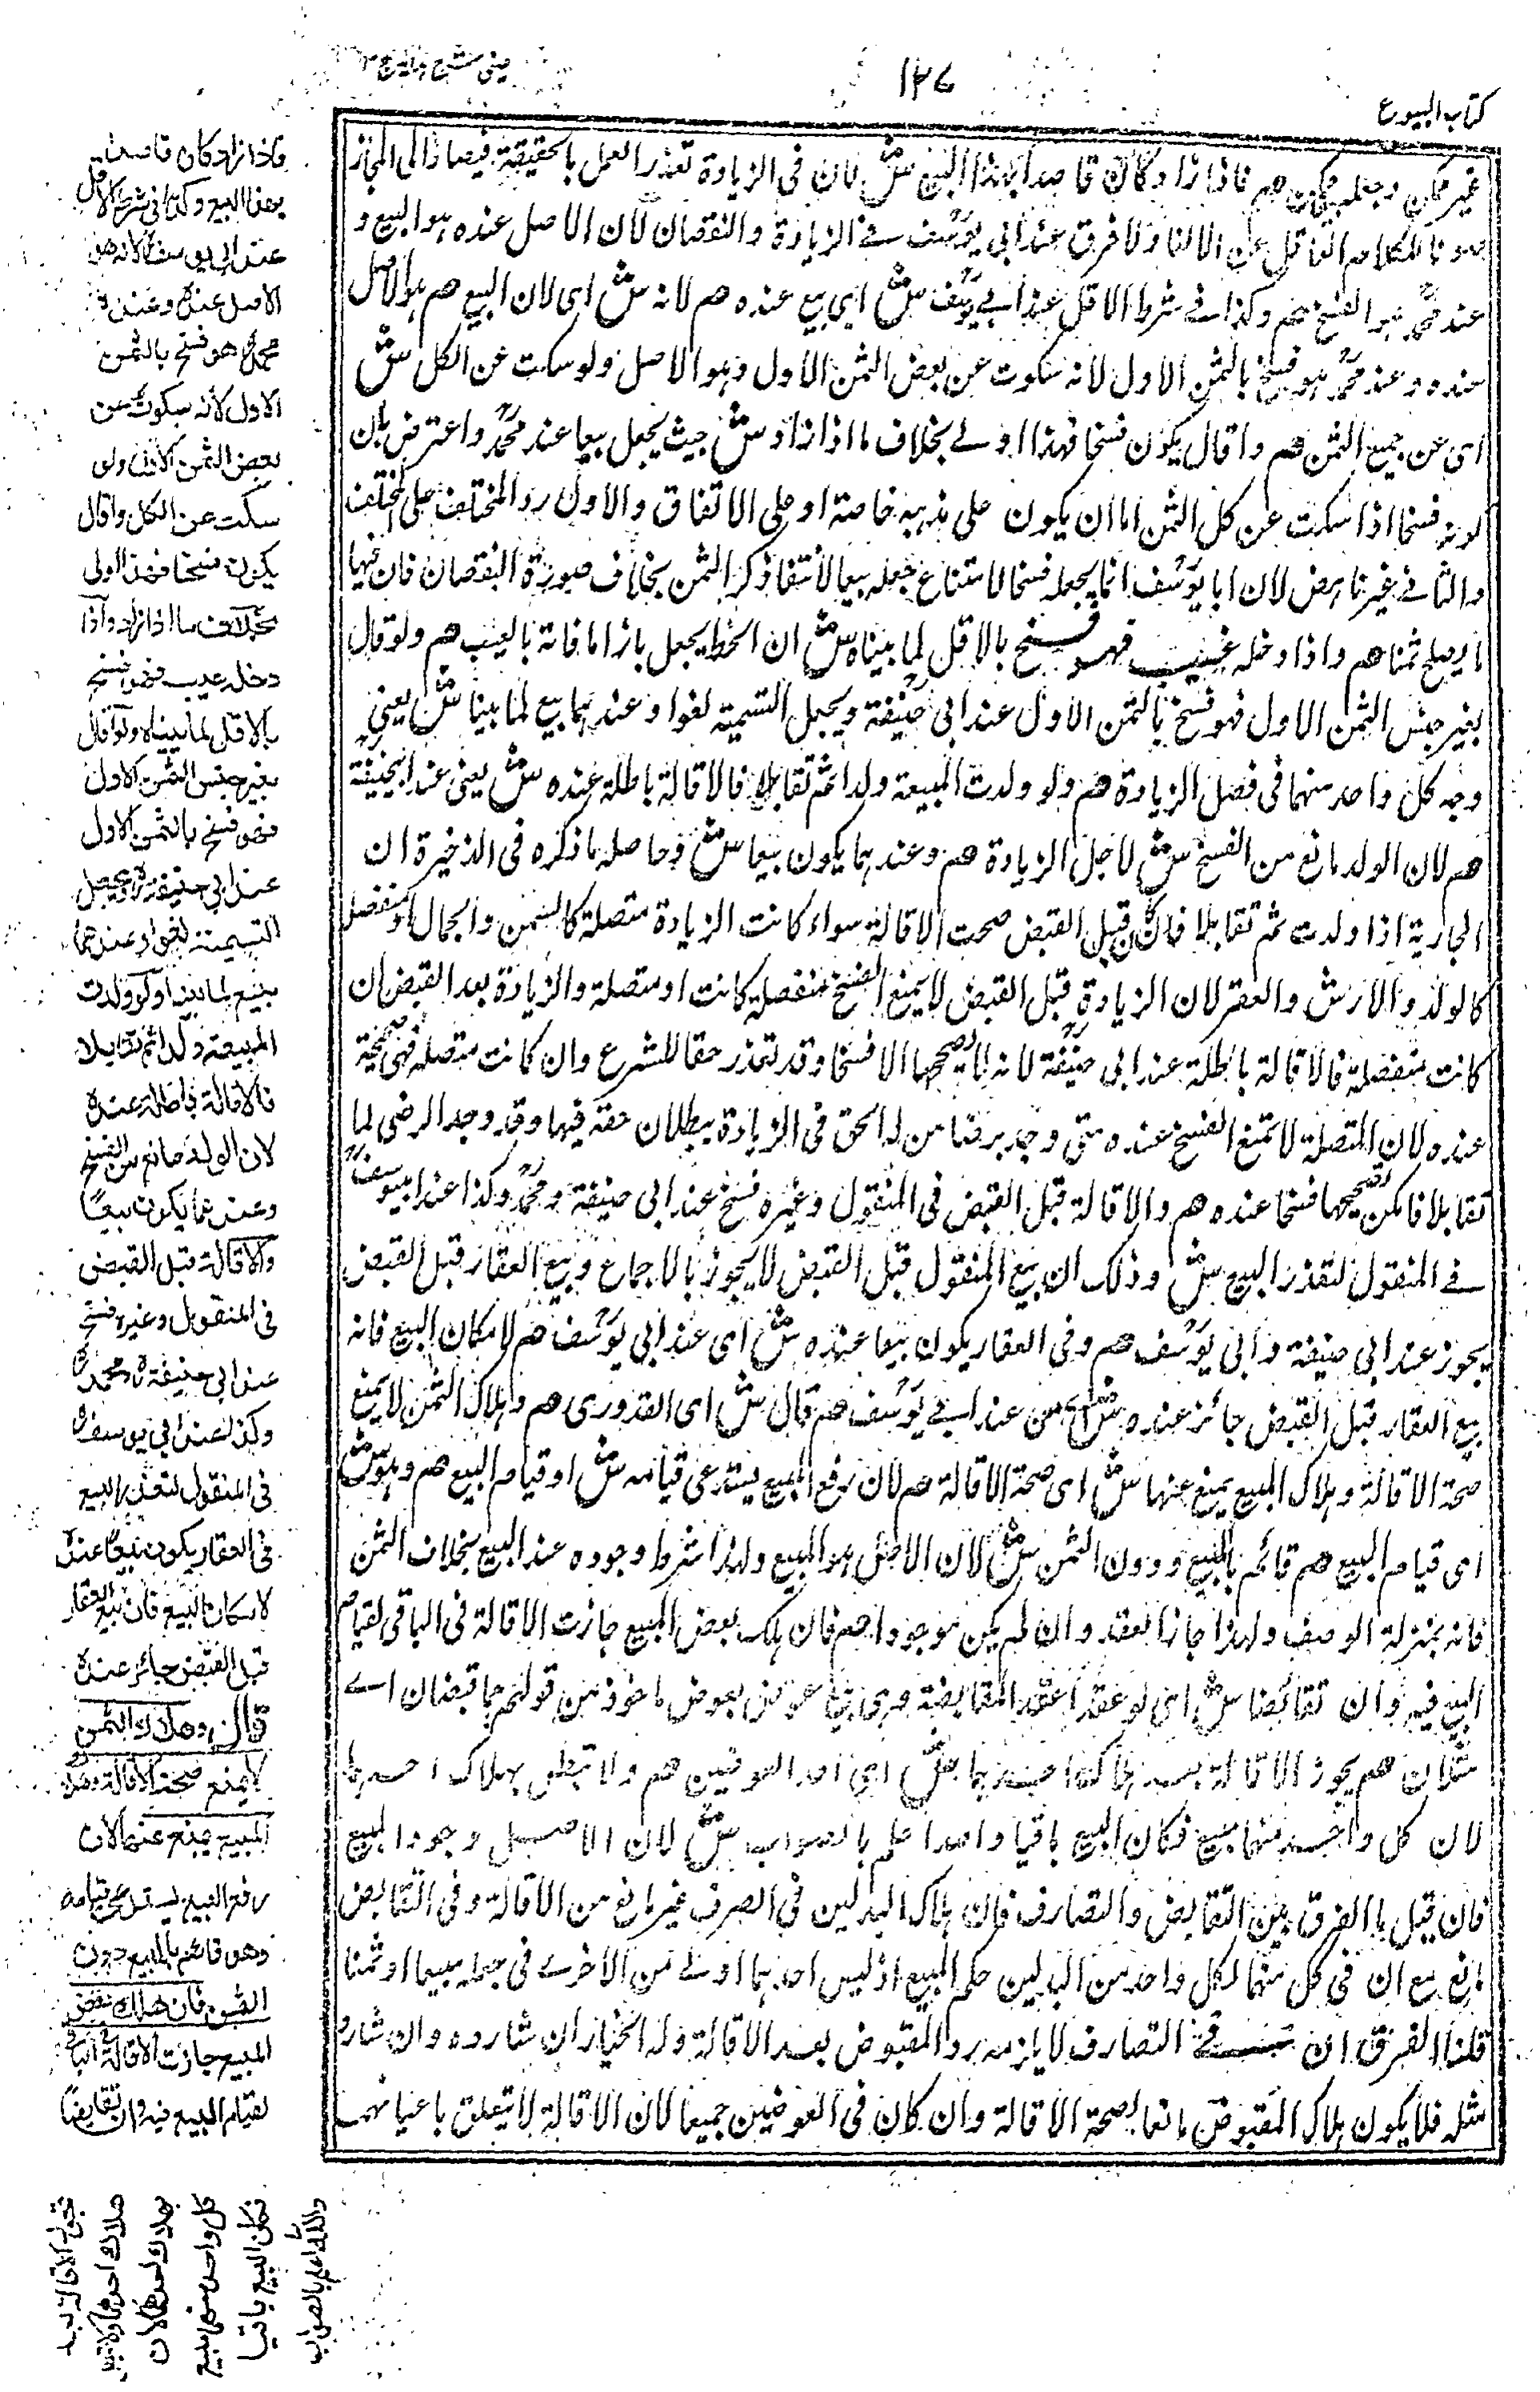 كتاب البيوع
١٣٧
عينى شرح هدايه ج ٣
غير ممكن وجعله ممكن هم فاذا زاد كان قاصدا بهذا البيع ش لان فى الزيادة تعذر العمل بالحقيقة فيصار الى المجاز
صونا لكلام العاقل عن الالغا ولا فرق عند ابى يوسف فے الزيادة والنقصان لان الاصل عنده هو البيع و
عند محمد هو الفسخ هم وكذا فے شرط الاقل عند ابے يوسف ش اى بيع عنده هم لانه ش اى لان البيع هم هو الاصل
عنده وعند محمد هو فسخ بالثمن الاول لانه سكوت عن بعض الثمن الاول وهو الاصل ولو سكت عن الكل ش
اى عن جميع الثمن هم واقال يكون فسخا فهذا اولے بخلاف ما اذا زاد ش حيث يجعل بيعا عند محمد واعترض بان
كونه فسخا اذا سكت عن كل الثمن اما ان يكون على مذهبه خاصة او على الاتفاق والاول رد المختلف على المختلف
والثانے غير ناهض لان ابا يوسف انما يجعله فسخا لامتناع جعله بيعا لانتفا ذكر الثمن بخلاف صورة النقصان فان فيها
ما يصلح ثمنا هم واذا دخله عيب فهو فسخ بالاقل لما بيناه ش ان الحط يجعل بازا ما فاته بالعيب هم ولو قال
بغير جنس الثمن الاول فهو فسخ بالثمن الاول عند ابى حنيفة ويجعل التسمية لغوا وعندهما بيع لما بينا ش يعنى
وجه كل واحد منهما فى فصل الزيادة هم ولو ولدت المبيعة ولدا ثم تقايلا فالاقالة باطلة عنده ش يعنى عند ابيحنيفة
هم لان الولد مانع من الفسخ ش لاجل الزيادة هم وعندهما يكون بيعا ش وحاصله ما ذكره فى الذخيرة ان
الجارية اذا ولدت ثم تقايلا فان كان قبل القبض صحت الاقالة سواء كانت الزيادة متصلة كالسمن والجمال او منفصلة
كالولد والارش والعقر لان الزيادة قبل القبض لا يمنع الفسخ منفصلة كانت او متصلة والزيادة بعد القبض ان
كانت منفصلة فالاقالة باطلة عند ابى حنيفة لانه لا يصححها الا فسخا وقد تعذر حقا للشرع وان كانت متصلة فهى صحيحة
عنده لان المتصلة لا تمنع الفسخ عنده متى وجد برضا من له الحق فى الزيادة ببطلان حقه فيها وقد وجد الرضى لما
تقايلا فامكن تصحيحها فسخا عنده هم والاقالة قبل القبض فى المنقول وغيره فسخ عند ابى حنيفة ومحمد وكذا عند ابيوسف
فے المنقول لتعذر البيع ش وذلك ان بيع المنقول قبل القبض لا يجوز بالاجماع وبيع العقار قبل القبض
يجوز عند ابى حنيفة وابى يوسف هم وفى العقار يكون بيعا عنده ش اى عند ابى يوسف هم لامكان البيع فانه
بيع العقار قبل القبض جائز عنده ش اى عند ابے يوسف هم قال ش اى القدورى هم وهلاك الثمن لا يمنع
صحة الاقالة وهلاك المبيع يمنع عنها ش اى صحة الاقالة هم لان رفع المبيع يستدعى قيامه ش او قيام البيع هم وهو ش
اى قيام البيع هم قائم بالمبيع ودون الثمن ش لان الاصل هو المبيع ولهذا شرط وجوده عند البيع بخلاف الثمن
فانه بمنزلة الوصف ولهذا جاز العقد وان لم يكن موجودا هم فان هلك بعض المبيع جازت الاقالة فى الباقى لقيام
البيع فيه وان تقايضا ش اى لو عقدا عقد المقايضة وهى بيع عوض بعوض ماخوذ من قولهم هما قيضان اے
مثلان هم يجوز الاقالة بعد هلاك احدهما ش اى احد العوضين هم ولا تبطل بهلاك احدهما
لان كل واحد منهما مبيع فكان البيع باقيا والله اعلم بالصواب ش لان الاصل وجود المبيع
فان قيل ما الفرق بين التقايض والتصارف فان هلاك البدلين فى الصرف غير مانع من الاقالة وفى التقايض
مانع مع ان فى كل منهما لكل واحد من البدلين حكم المبيع اذ ليس احدهما اولے من الاخرے فى جعله مبيعا او ثمنا
قلنا الفرق ان فے التصارف لا يلزمه رد المقبوض بعد الاقالة وله الخيار ان شا رده وان شا رد
مثله فلا يكون هلاك المقبوض مانعا لصحة الاقالة وان كان فى العوضين جميعا لان الاقالة لا يتعلق باعيانهما
فاذا زاد كان قاصدا
بهذا البيع وكذا فى شرط الاقل
عند ابى يوسف لانه هو
الاصل عنده وعند
محمد هو فسخ بالثمن
الاول لانه سكوت عن
بعض الثمن الاول ولو
سكت عن الكل واقال
يكون فسخا فهذا اولى
بخلاف ما اذا زاد واذا
دخله عيب فهو فسخ
بالاقل لما بيناه ولو قال
بغير جنس الثمن الاول
فهو فسخ بالثمن الاول
عند ابى حنيفة ويجعل
التسمية لغوا وعندهما
بيع لما بينا ولو ولدت
المبيعة ولدا ثم تقايلا
فالاقالة باطلة عنده
لان الولد مانع من الفسخ
وعندهما يكون بيعا
والاقالة قبل القبض
فى المنقول وغيره فسخ
عند ابى حنيفة ومحمد
وكذا عند ابى يوسف
فى المنقول لتعذر البيع
فى العقار يكون بيعا عنده
لامكان البيع فان بيع العقار
قبل القبض جائز عنده
قال وهلاك الثمن
لا يمنع صحة الاقالة وهلاك
المبيع يمنع عنها لان
رفع البيع يستدعى قيامه
وهو قائم بالمبيع دون
الثمن فان هلك بعض
المبيع جازت الاقالة فى الباقى
لقيام البيع فيه وان تقايضا
تجوز الاقالة بعد
هلاك احدهما ولا تبطل
بهلاك احدهما لان
كل واحد منهما مبيع
فكان البيع باقيا
والله اعلم بالصواب